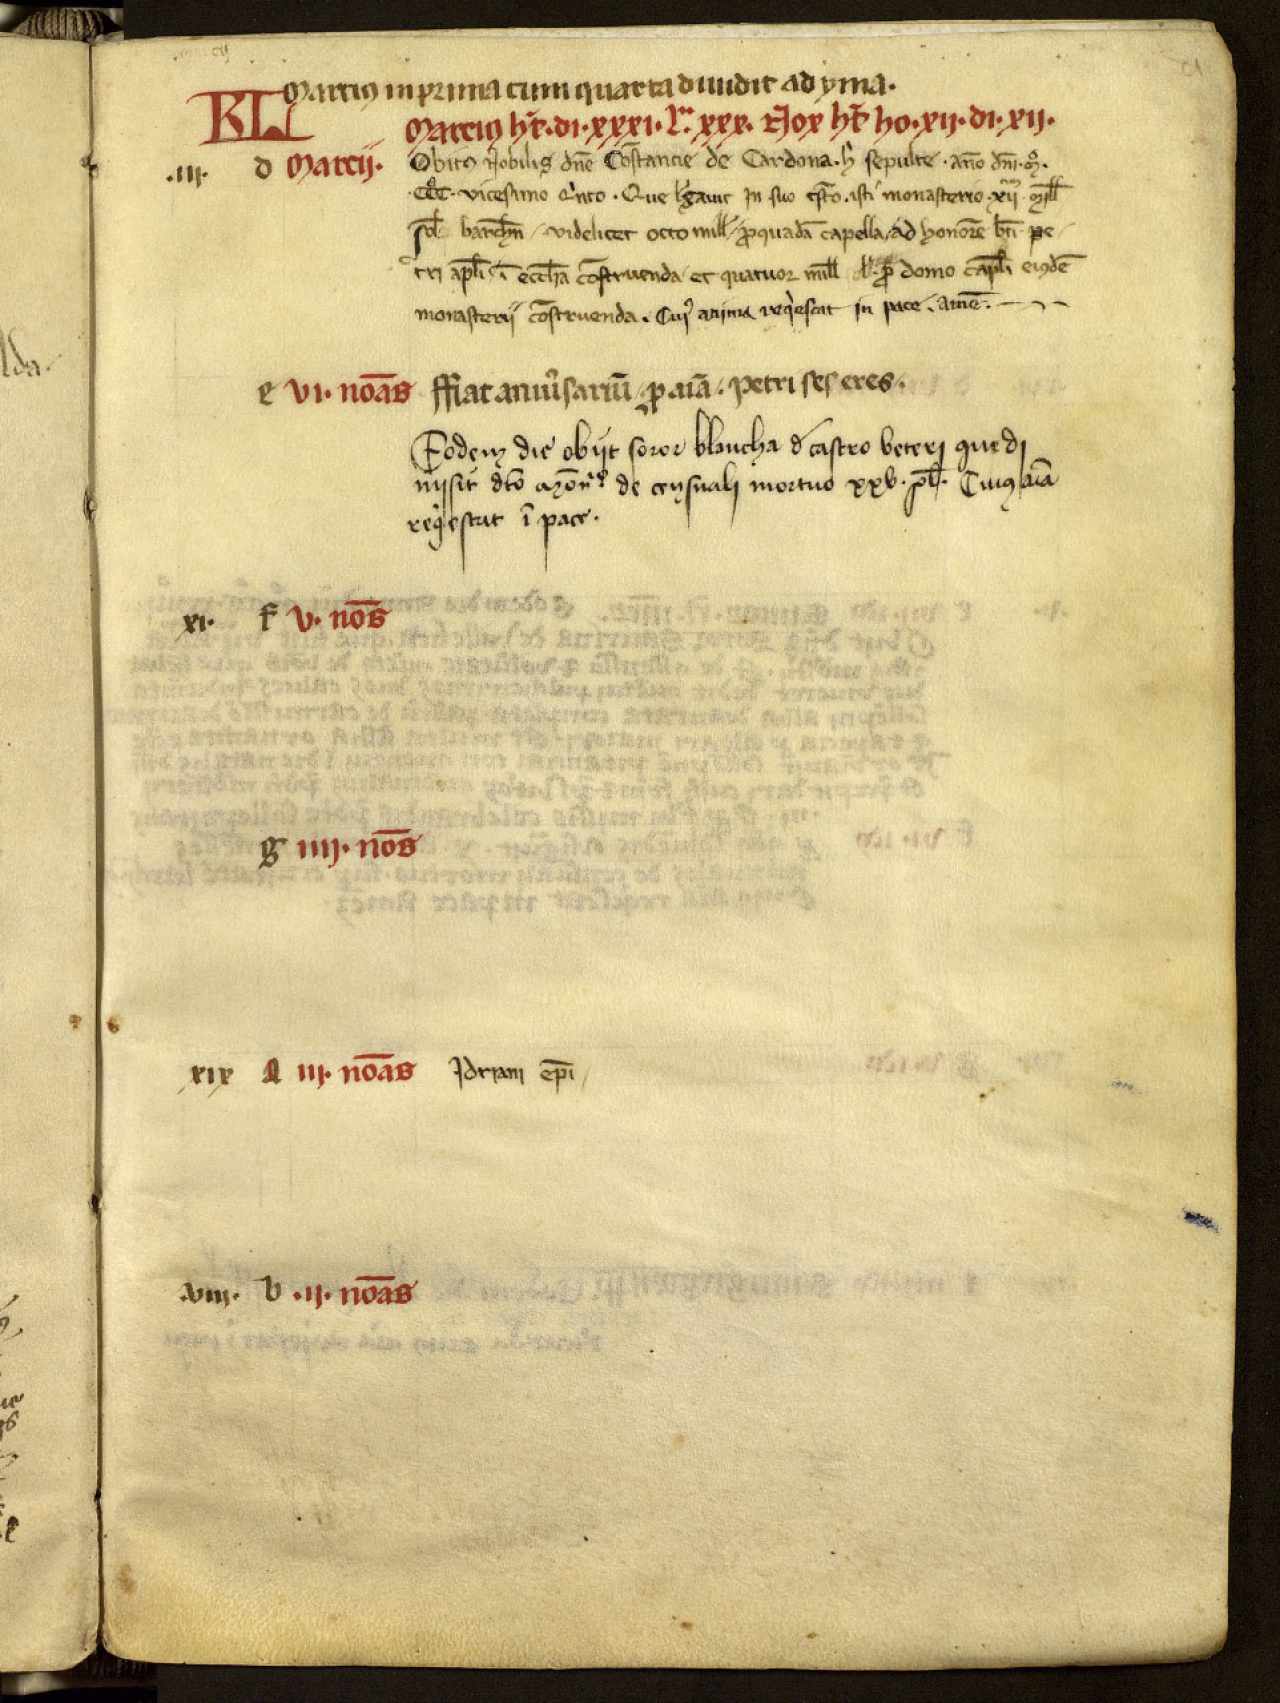 Marcius in prima cum quarta diuidit ad yma.
KL Marcius ht̄. di. xxxi. lª. xxx. Nox ht̄ ho. xii. di. xii.
.iii. d Marcii. Obitus Nobilis dn̄e Constancie de Cardona. h̄ sepulte. año dn̄i. mº.
CCC. vicesimo q'nto. Que legauit in suo tst̄o. isti monasterio. xii. mill
sol. barchn̄. videlicet octo mill. pro quadā capella, ad honorē bt̄i pe
tri apl̄i. ī eccl̄ia cōstruenda. et quatuor mill. pro domo capl̄i eiusdē
monasterii cōstruenda. Cui' anima req'escat in pace. amē.
e VI. noās ffiat aniu'sariū p aīa. petri ses eres.
Eodem die obiit soror blancha d' castro veteri que di
misit dc̄o mon̄ de censuali mortuo xxv. sol. Cuius aīa
req'escat ī pace.
xi. f V. noās
g IIII. noās
xix A III. noās Adriani ep̄i
.viii. b .II. noās